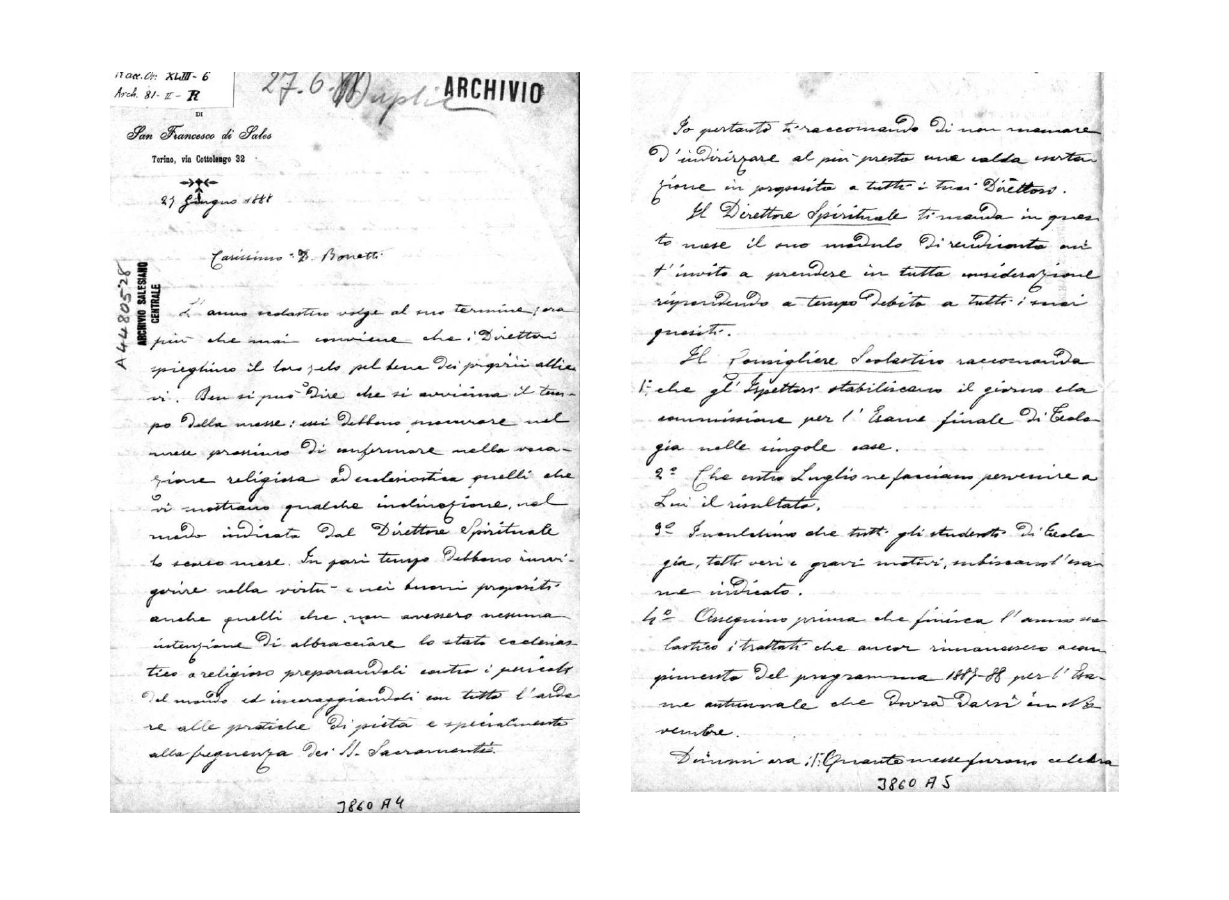 Racc. Or. XLIII - 6
Arch. 81 - II - R
27.6.
ARCHIVIO
DI
San Francesco di Sales
Torino, via Cottolengo 32
27 Giugno 1888
A4480528
ARCHIVIO SALESIANO
CENTRALE
Carissimo D. Bonetti
L'anno scolastico volge al suo termine; ora
più che mai conviene che i Direttori
spieghino il loro zelo pel bene dei proprii allie-
vi. Ben si può dire che si avvicina il tem-
po della messe: essi debbono procurare nel
mese prossimo di confermare nella voca-
zione religiosa ed ecclesiastica quelli che
vi mostrano qualche inclinazione, nel
modo indicato dal Direttore Spirituale
lo scorso mese. In pari tempo debbono invi-
gorire nella virtù e nei buoni propositi
anche quelli che non avessero nessuna
intenzione di abbracciare lo stato ecclesias
tico o religioso preparandoli contro i pericoli
del mondo ed incoraggiandoli con tutto l'ardo
re alle pratiche di pietà e specialmente
alla frequenza dei SS. Sacramenti.
3860 A4
Io pertanto ti raccomando di non mancare
d'indirizzare al più presto una calda esorta
zione in proposito a tutti i tuoi Direttori.
Il Direttore Spirituale ti manda in ques
to mese il suo modulo di rendiconto ed
t'invito a prendere in tutta considerazione
rispondendo a tempo debito a tutti i suoi
quesiti.
Il Consigliere Scolastico raccomanda
1º che gl'Ispettori stabiliscano il giorno e la
commissione per l'Esame finale di Teolo-
gia nelle singole case.
2º Che entro Luglio ne facciano pervenire a
Lui il risultato.
3º Inculchino che tutti gli studenti di Teolo-
gia, tolti veri e gravi motivi, subiscano l'esa-
me indicato.
4º Assegnino prima che finisca l'anno sco
lastico i trattati che ancor rimanessero a com
pimento del programma 1887-88 per l'Esa-
me autunnale che dovrà darsi in No
vembre.
Dimmi ora: 1º Quante messe furono celebra
3860 A5